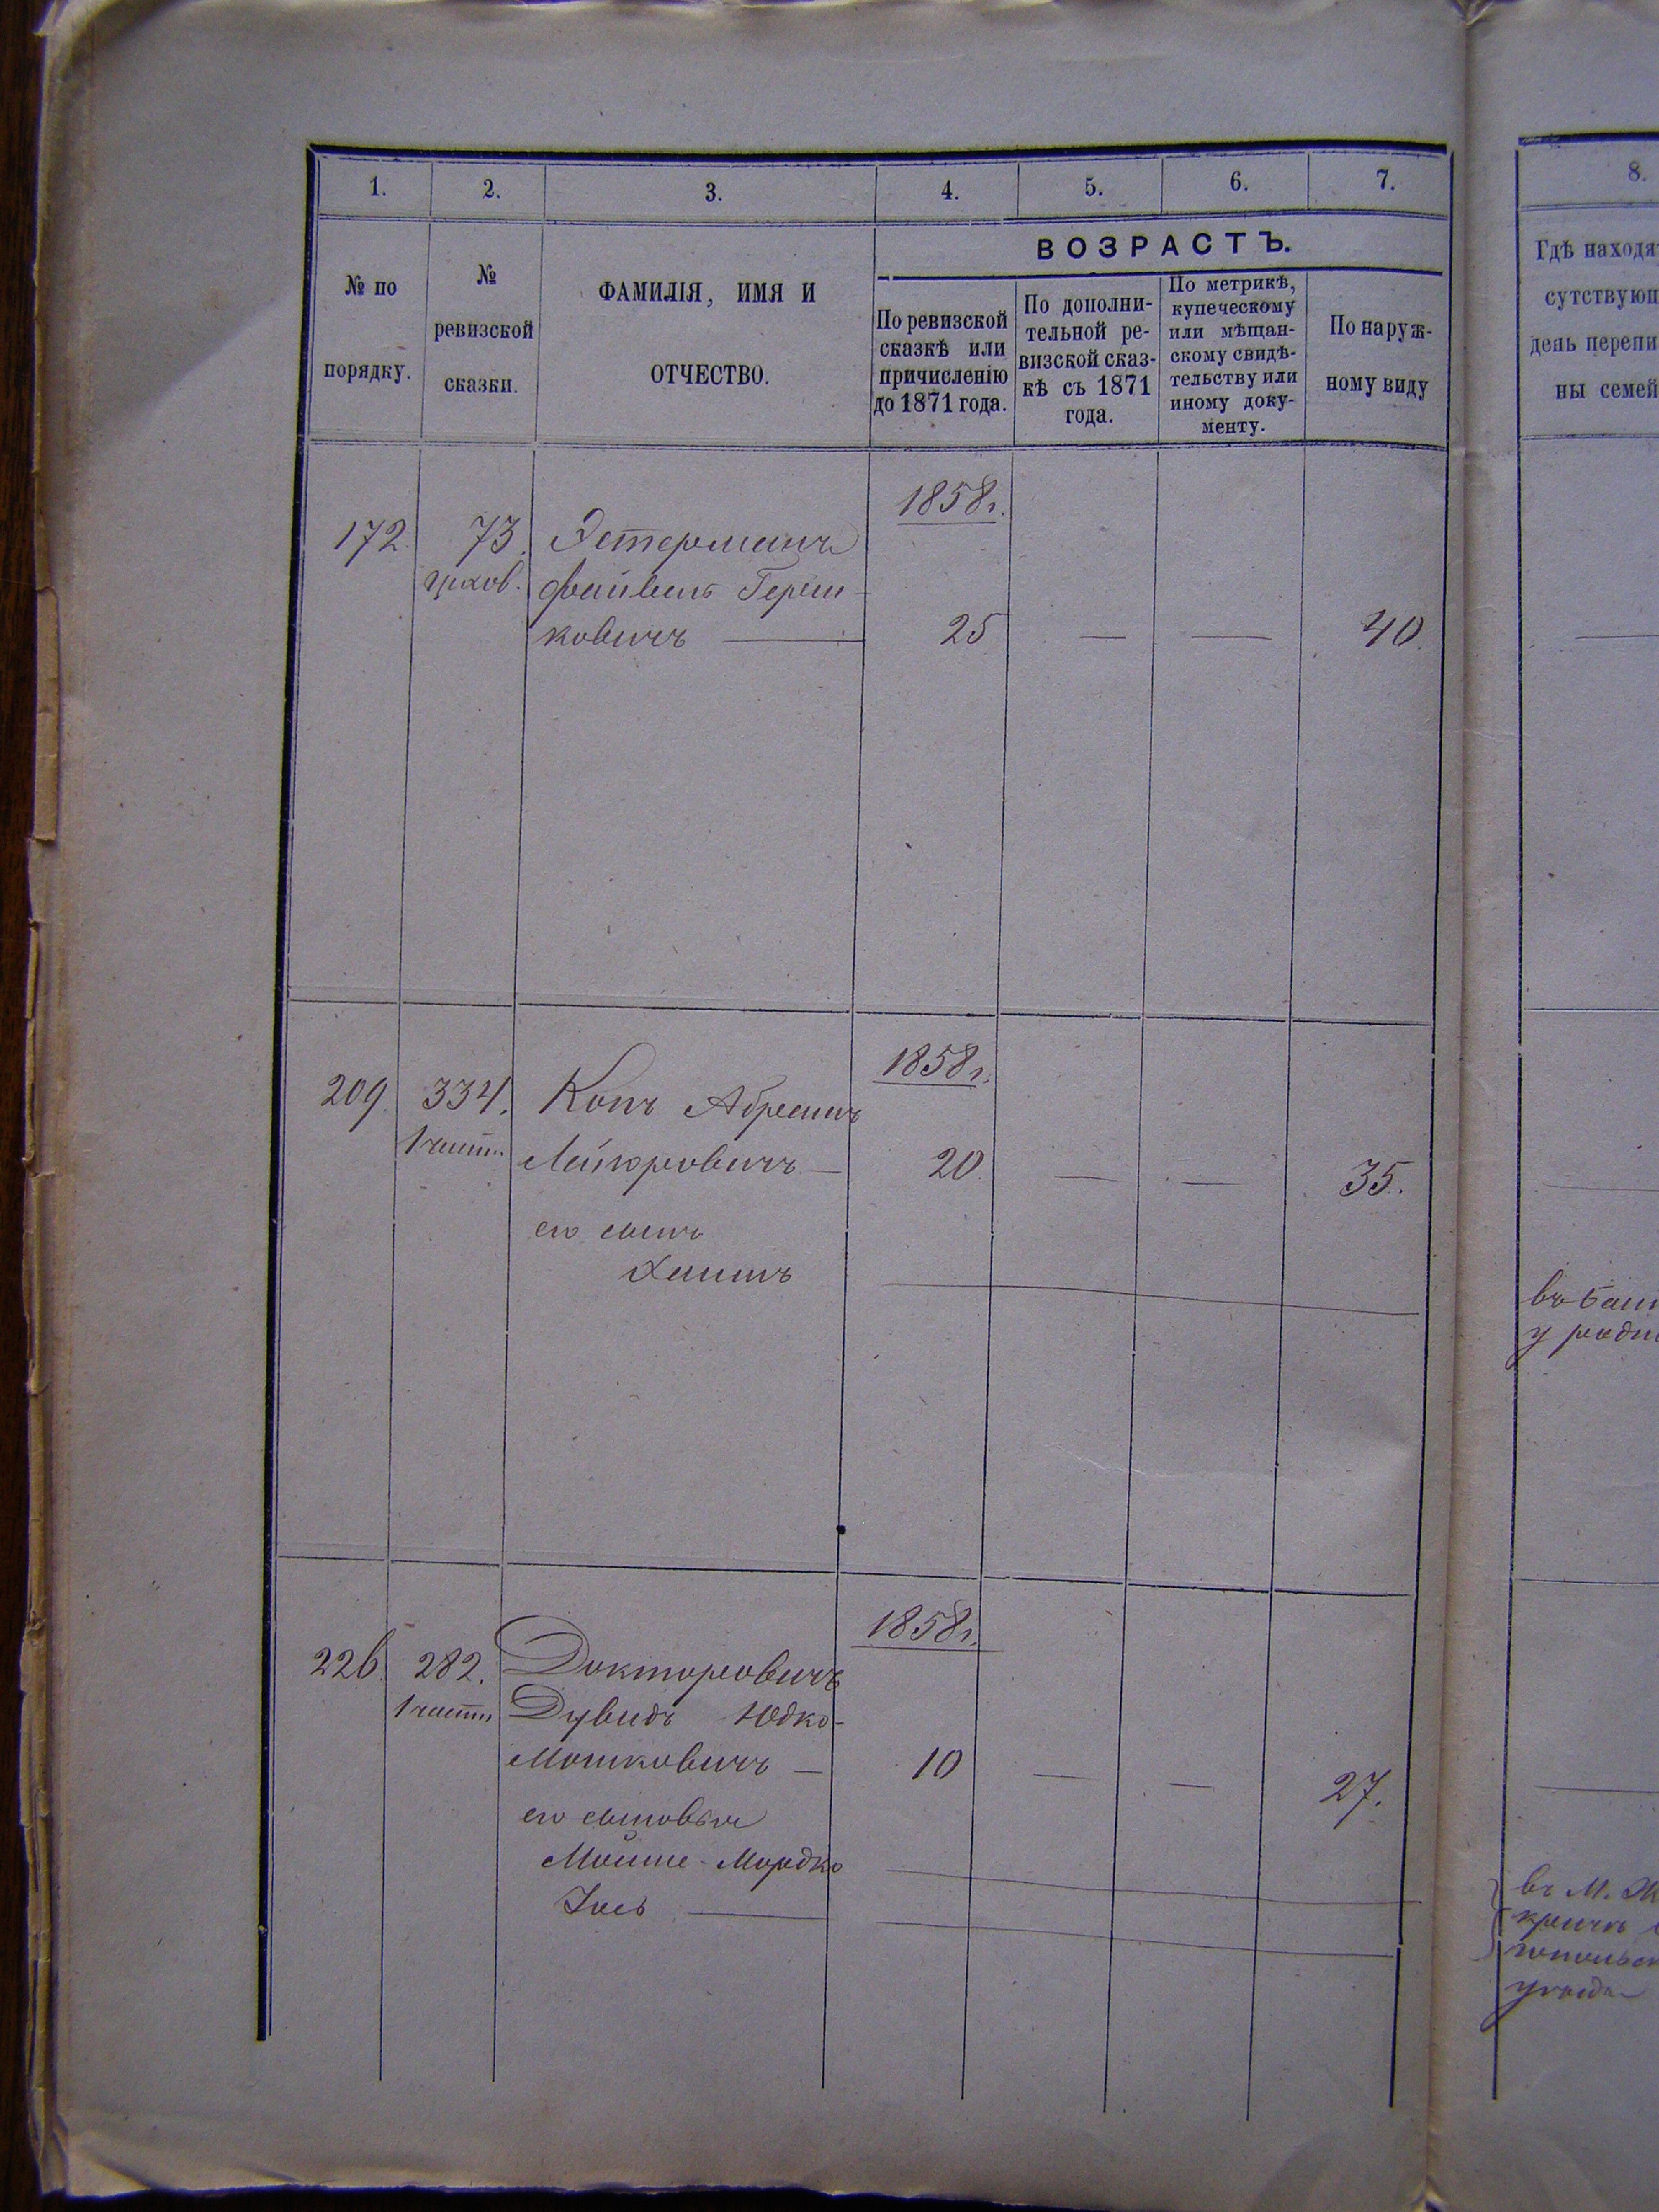 1. 2. 3. 4. 5. 6. 7.
ВОЗРАСТЪ.
№ по
порядку.
№
ревизской
сказки.
ФАМИЛІЯ, ИМЯ И
ОТЧЕСТВО.
По ревизской
сказкѣ или
причисленію
до 1871 года.
По дополни-
тельной ре-
визской сказ-
кѣ съ 1871
года.
По метрикѣ,
купеческому
или мѣщан-
скому свидѣ-
тельству или
иному доку-
менту.
По наруж-
ному виду
1858 г.
172. 73. Эстерманъ
Файвель Герш-
ковичъ — 25 — — 40.
1858 г.
209. 334. Копъ Абрамъ
1 части
— 20 — — 35.
его сынъ
Хаимъ
1858 г.
226. 282. Докторовичъ
1 части Дувидъ Юдко-
Мошковичъ — 10 — — 27.
его сыновья
Мойше-Мордко
Іось —
8.
Гдѣ находя
сутствующ
день перепи
ны семей
въ
у родн
въ М.
уѣзда